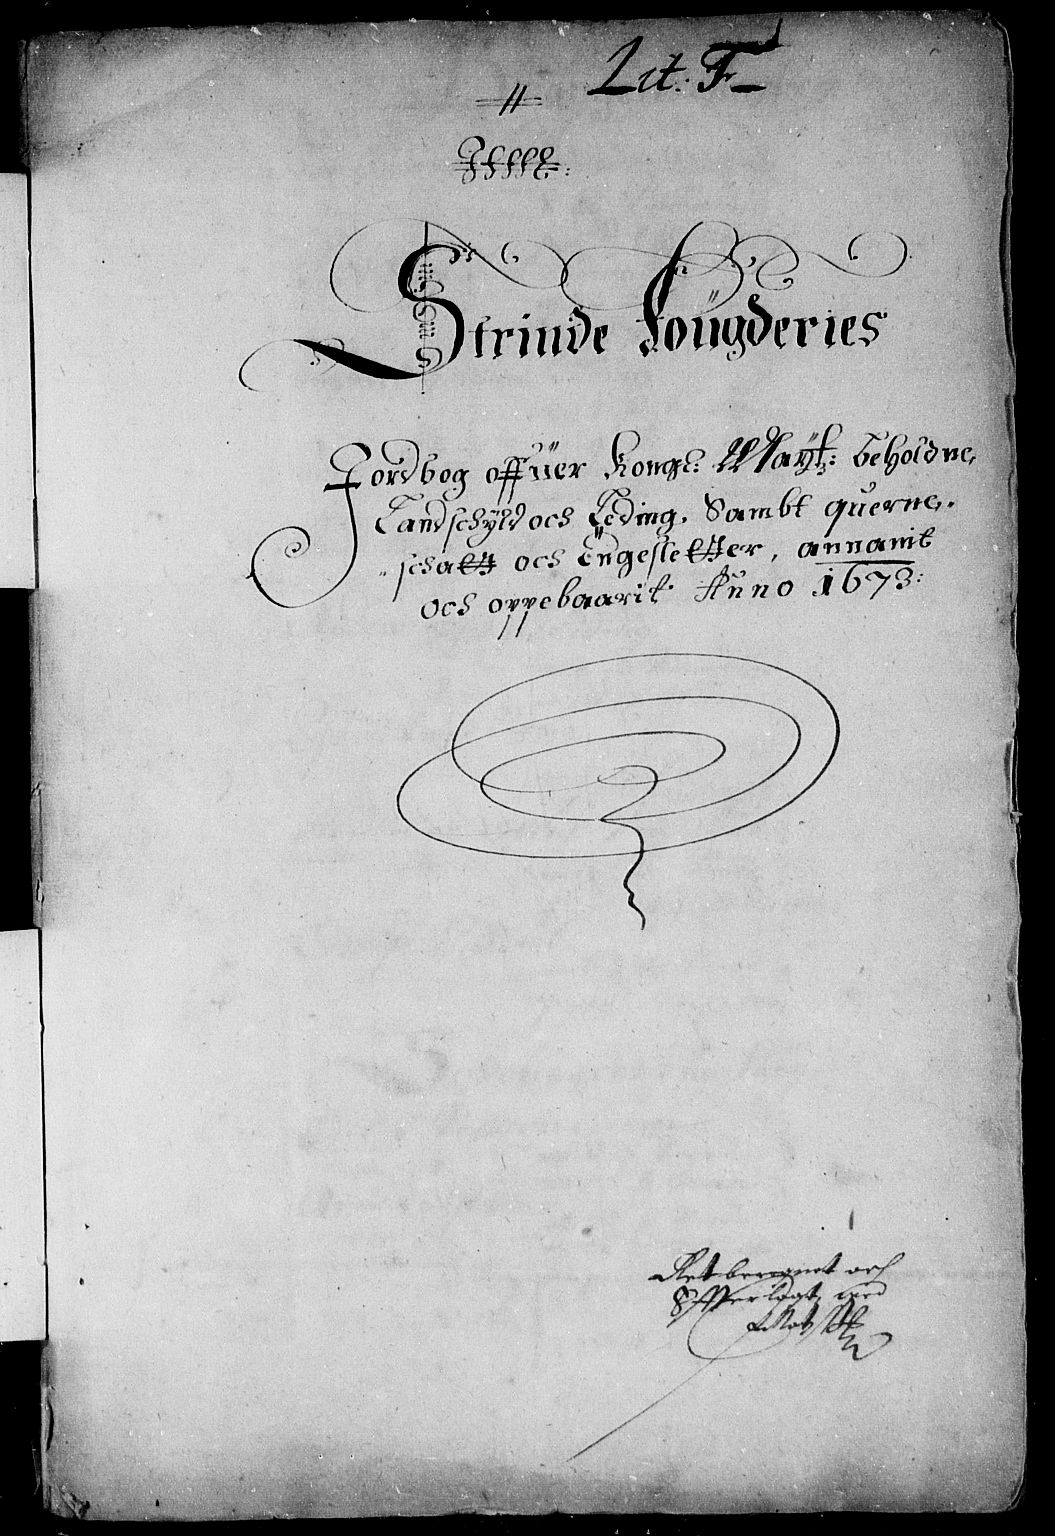 Lit: F
11
Strinde Fougderies
Jordbog offuer Kongl: Mayt: beholdne,
Landschyld och Leding. Sambt querne,
schatt och Engesletter, annamit
och oppebaarit Anno 1673:
Ret beregnet och